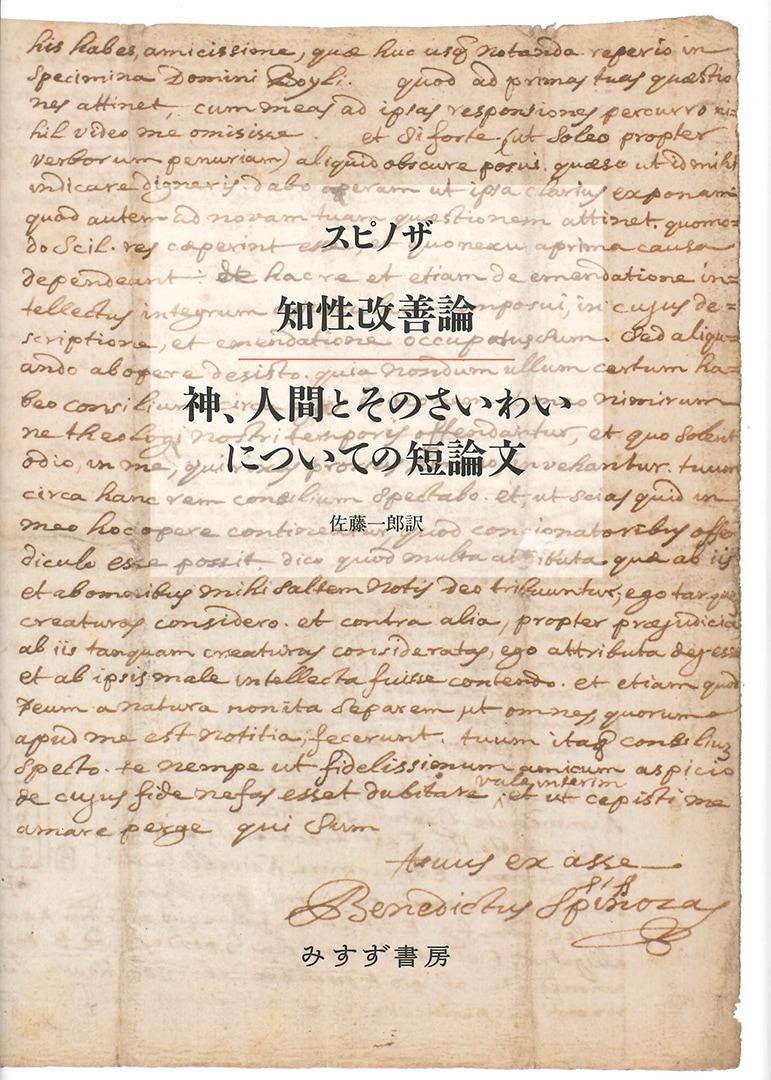 his habes, amicissime, quæ huc usq notanda reperio in
specimina Domini Boyli. quod ad primas tuas quæstio
nes attinet, cum meas ad ipsas responsiones percurro ni-
hil video me omisisse. et si forte (ut soleo propter
verborum penuriam) aliquid obscure posui. quæso ut id mihi
indicare digneris. dabo operam ut ipsa clarius exponam
quod autem ad novam tuam quæstionem attinet. quomo=
スピノザ
do scil. res cæperint esse, et quo nexu a prima causa
dependeant: de hac re et etiam de emendatione in=
知性改善論
tellectus integrum composui, in cujus de=
scriptione, et emendatione occupatus sum. sed aliqu-
ando ab opere desisto. quia nondum ullum certum ha=
神、人間とそのさいわい
beo consilium nimirum
ne theologi nostri temporis offendantur, et quo solent
についての短論文
odio, in me, qui invehantur. tuum
circa hanc rem consilium spectabo. et ut scias quid in
佐藤一郎訳
meo hoc opere quod concionatoribus offe
diculo esse possit. dico quod multa attributa quæ ab iis
et ab omnibus mihi saltem notis deo tribuuntur; ego tanquã
creaturas considero. et contra alia, propter præjudicia
ab iis tanquam creaturas considerata, ego attributa dei esse
et ab ipsis male intellecta fuisse contendo. et etiam quod
Deum a natura non ita separem ut omnes, quorum
apud me est notitia, fecerunt. tuum itaq consilium
specto. te nempe ut fidelissimum amicum aspicio
de cujus fide nefas esset dubitare vale interim et ut cepisti me
amare perge qui sum
tuus ex asse
Benedictus Spinoza
みすず書房